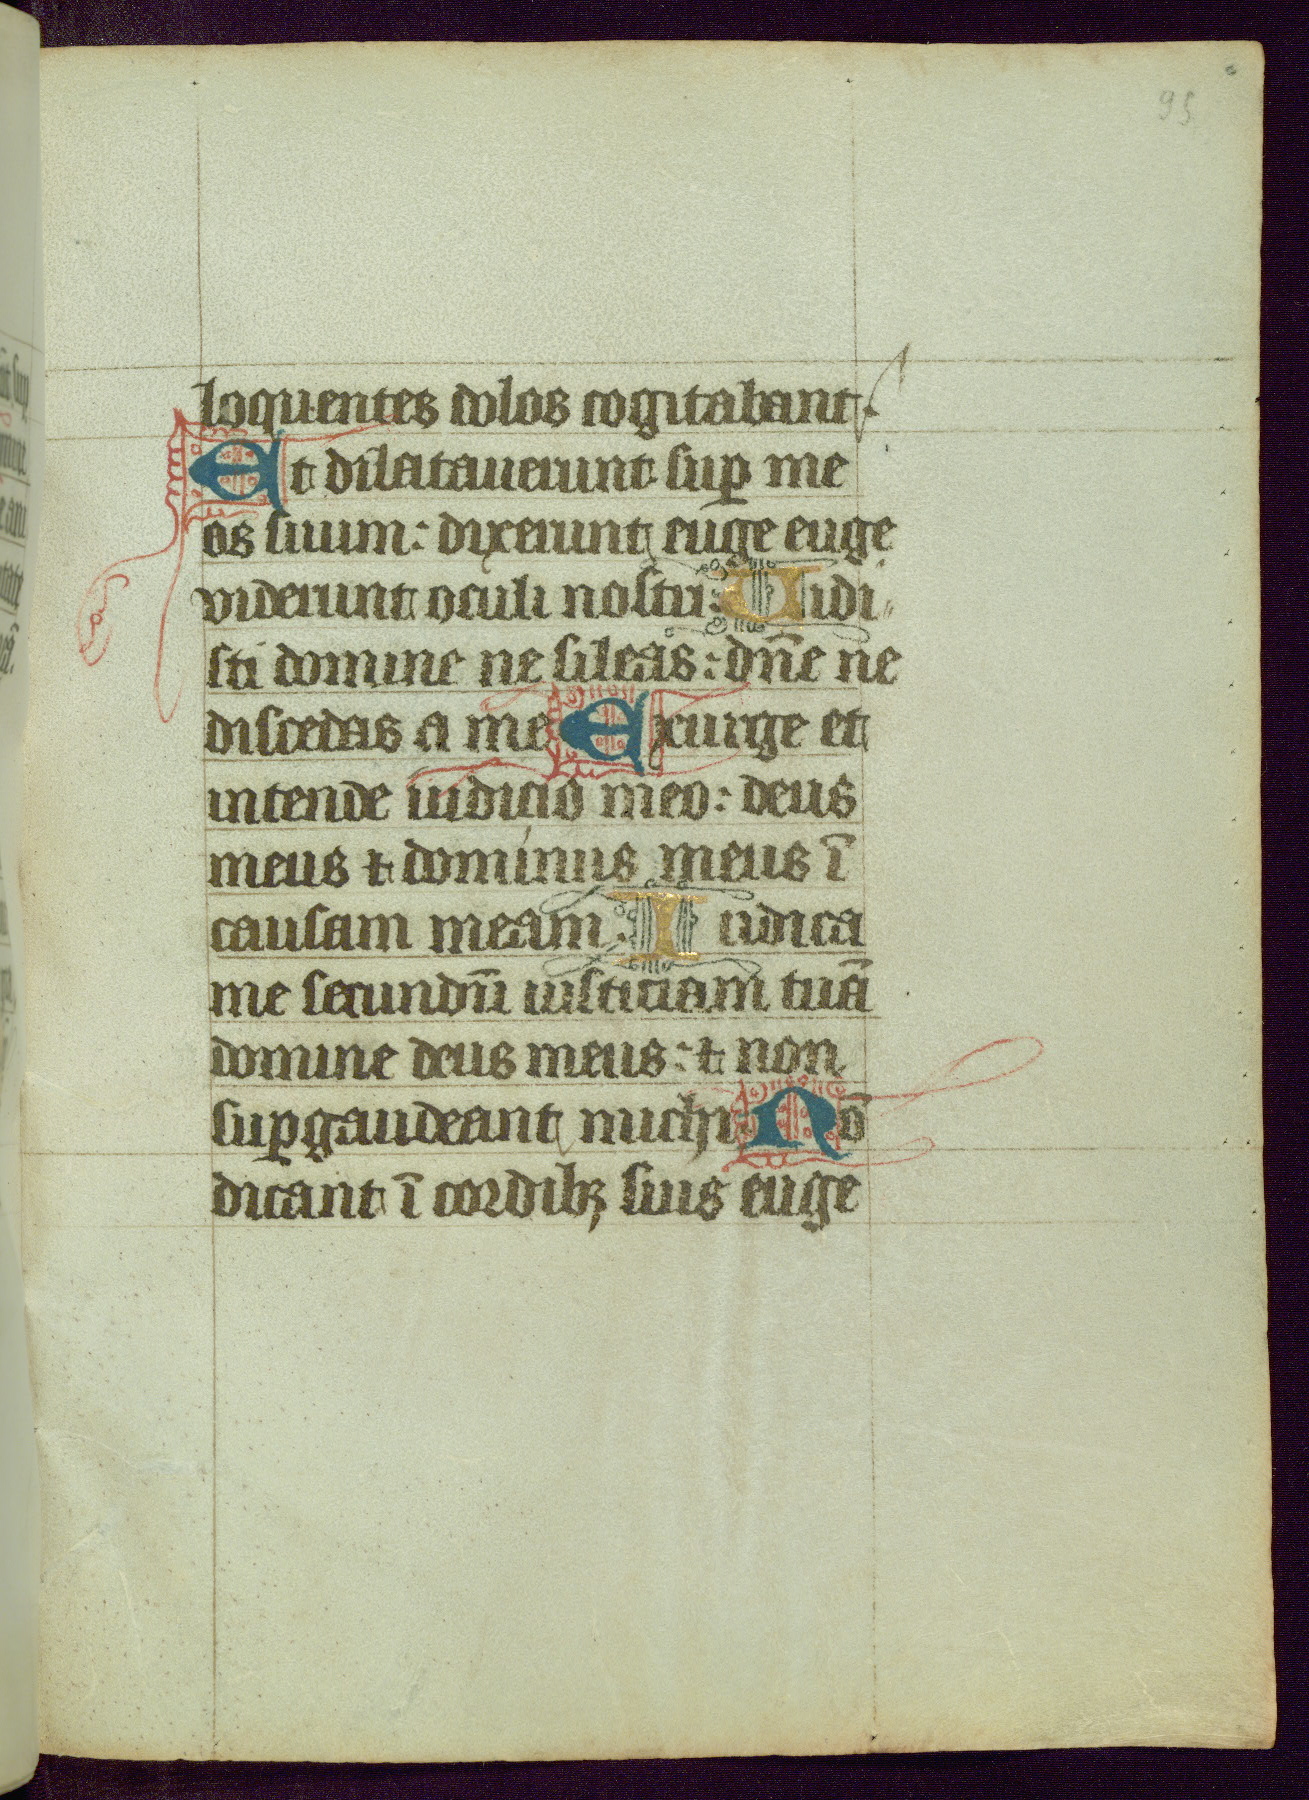 95
loquentes dolos cogitabant.
Et dilatauerunt sup me
os suum: dixerunt euge euge
viderunt oculi nostri: Uidi„
sti domine ne sileas: dn̄e ne
discedas a me Exurge et
intende iudicio meo: deus
meus ⁊ dominus meus ī
causam meam. Iudica
me secundū iusticiam tuā
domine deus meus: ⁊ non
supgaudeant michi. Nō
dicant ī cordibꝫ suis euge